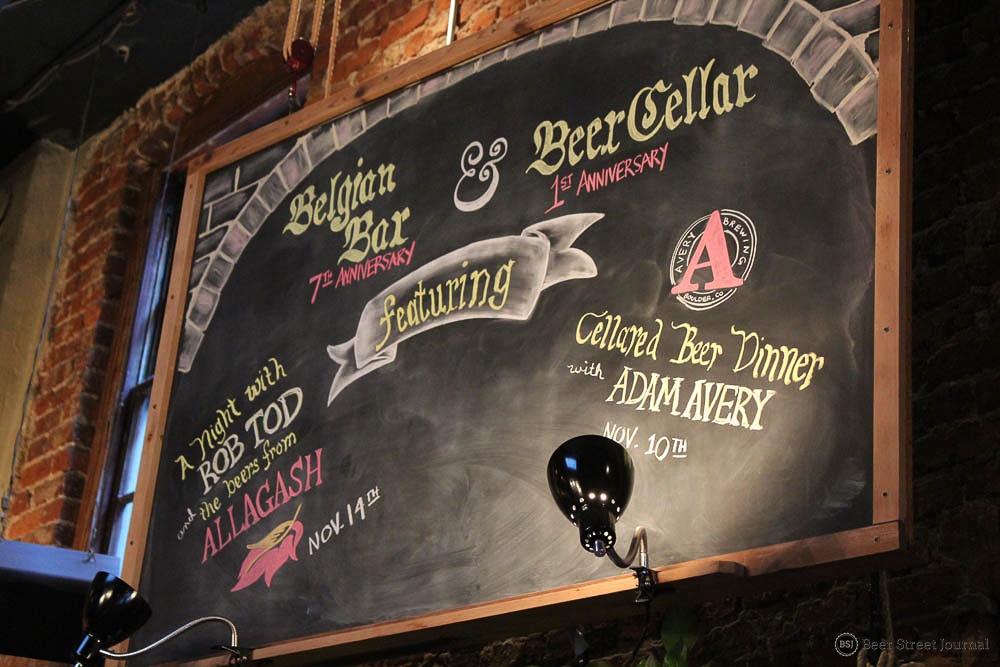 Belgian
Bar
7TH ANNIVERSARY
&
Beer Cellar
1ST ANNIVERSARY
featuring
A Night with
ROB TOD
and the beers from
ALLAGASH
NOV. 14TH
AVERY BREWING
A
BOULDER, CO
Cellared Beer Dinner
with ADAM AVERY
NOV. 10TH
BSJ Beer Street Journal